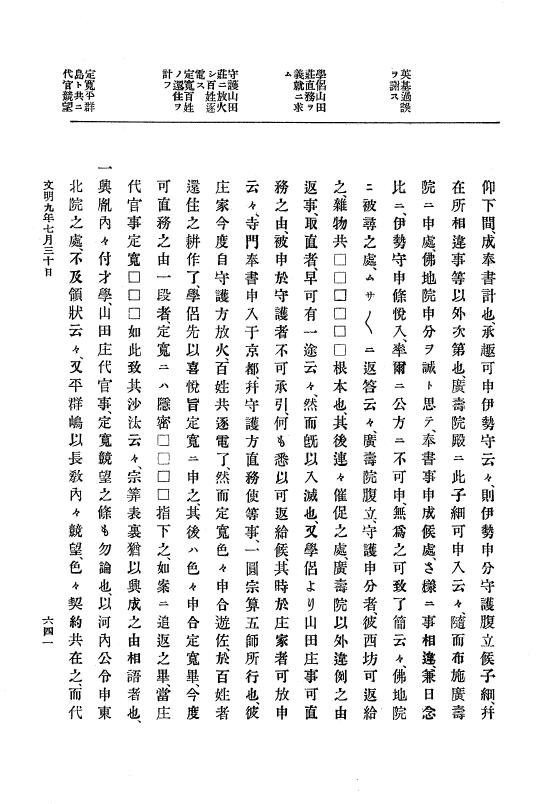 英基過誤
ヲ謝ス
學侶山田
莊直務ヲ
義就ニ求
ム
守護山田
莊ニ放火
シ百姓逐
電ス
定寬百姓
ノ還住ヲ
計フ
定寬平群
島ト共ニ
代官競望
仰下間、成奉書計也、承趣可申伊勢守云々、則伊勢申分守護腹立候子細、幷
在所相違事等以外次第也、廣壽院殿ニ此子細可申入云々、隨而布施廣壽
院ニ申處、佛地院申分ヲ誠ト思テ、奉書事申成候處、さ樣ニ事相違、兼日念
比ニ、伊勢守申條悅入、率爾ニ公方ニ不可申、無爲之可致了簡云々、佛地院
ニ被尋之處、ムサ〱ニ返答云々、廣壽院腹立、守護申分者彼西坊可返給
之雜物共□□□□□根本也、其後連々催促之處、廣壽院以外違例之由
返事、取直者、早可有一途云々、然而旣以入滅也、又學侶より山田庄事可直
務之由、被申於守護者不可承引、何も悉以可返給候、其時於庄家者可放申
云々、寺門奉書申入于京都、幷守護方直務使等事、一圓宗算五師所行也、彼
庄家今度自守護方放火、百姓共逐電了、然而定寬色々申合遊佐、於百姓者
還住之耕作了、學侶先以喜悅旨定寬ニ申之、其後ハ色々申合定寬畢、今度
可直務之由一段者、定寬ニハ隱密□□□□指下之、如案ニ追返之畢、當庄
代官事定寬□□□如此致其沙汰云々、宗算表裏猶以興成之由相語者也、
一興胤內々付才學、山田庄代官事、定寬競望之條も勿論也、以河內公令申東
北院之處、不及領狀云々、又平群嶋以長敎內々競望、色々契約共在之、而代
文明九年七月三十日
六四一